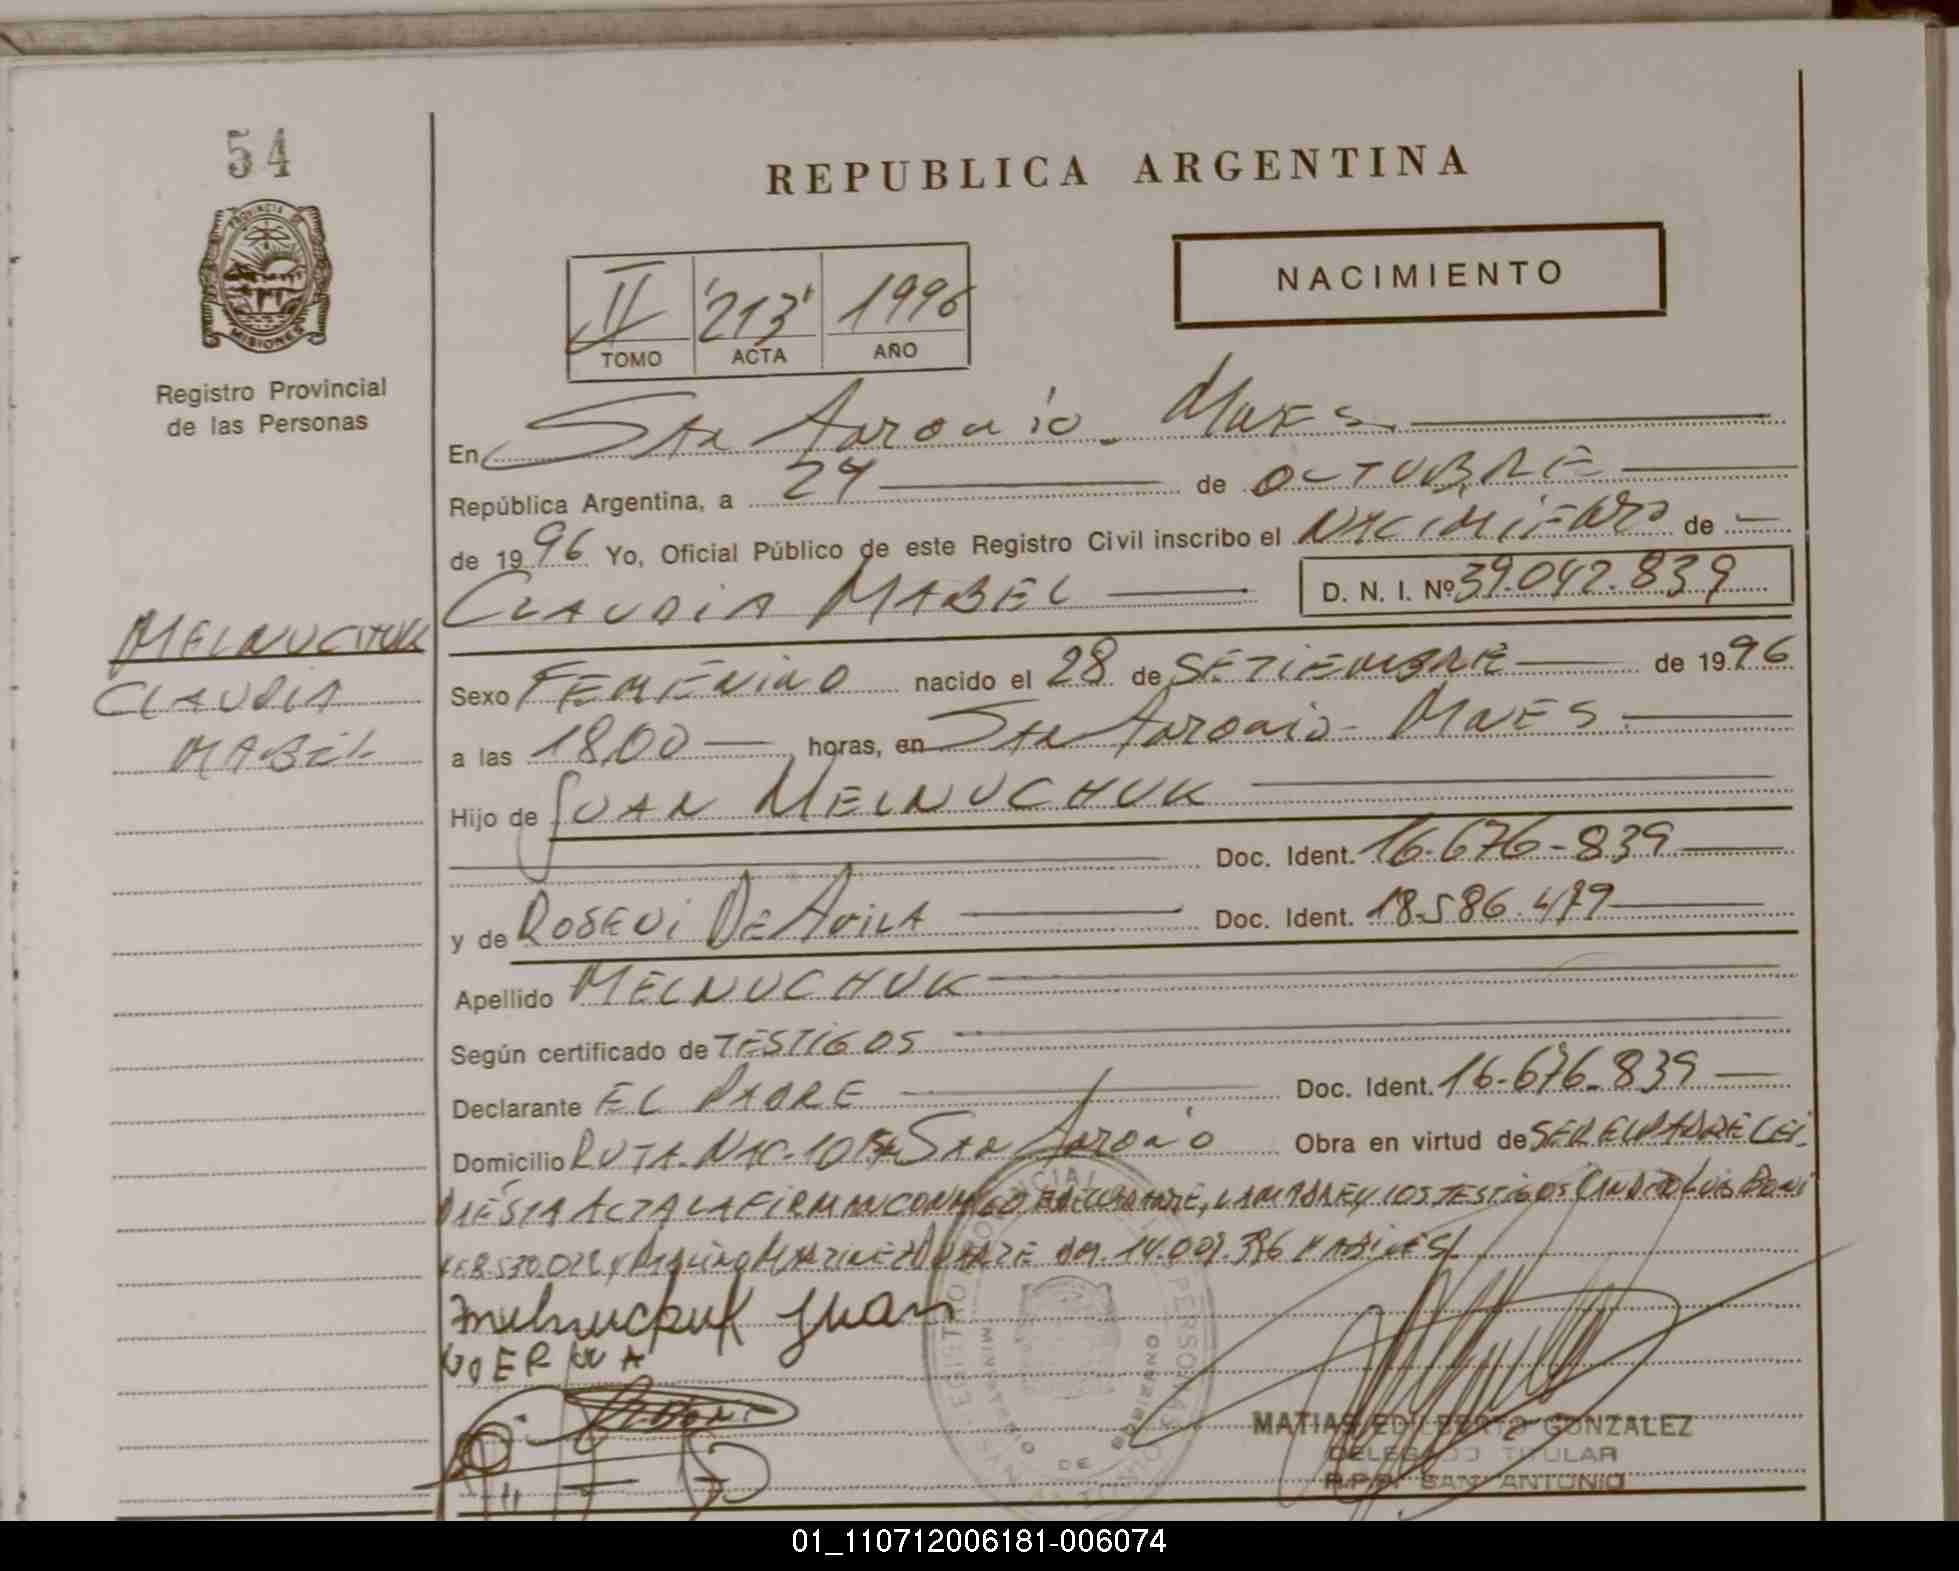 54
REPUBLICA ARGENTINA
PROVINCIA DE
MISIONES
Registro Provincial
de las Personas
NACIMIENTO
II '213' 1996
TOMO ACTA AÑO
En San Antonio - Mnes
República Argentina, a 24 de OCTUBRE
de 1996 Yo, Oficial Público de este Registro Civil inscribo el NACIMIENTO de
CLAUDIA MABEL D. N. I. Nº 39.042.839
MELNUCHUK
CLAUDIA
MABEL
Sexo FEMENINO nacido el 28 de SETIEMBRE de 1996
a las 18,00 horas, en San Antonio - MNES
Hijo de JUAN MELNUCHUK
Doc. Ident. 16.676-839
y de ROSELI DE AVILA Doc. Ident. 18.586.479
Apellido MELNUCHUK
Según certificado de TESTIGOS
Declarante EL PADRE Doc. Ident. 16-676-839
Domicilio RUTA. NAC. 101 San Antonio Obra en virtud de SER EL PADRE LEI-
DA ÉSTA ACTA LA FIRMAN CONMIGO EL PADRE, LA MADRE Y LOS TESTIGOS LUIS BONI
MARTINEZ DUARTE 14.009.396
melnuchuk Juan
MATIAS EDILBERTO GONZALEZ
DELEGADO TITULAR
R.P.P. SAN ANTONIO
01_110712006181-006074